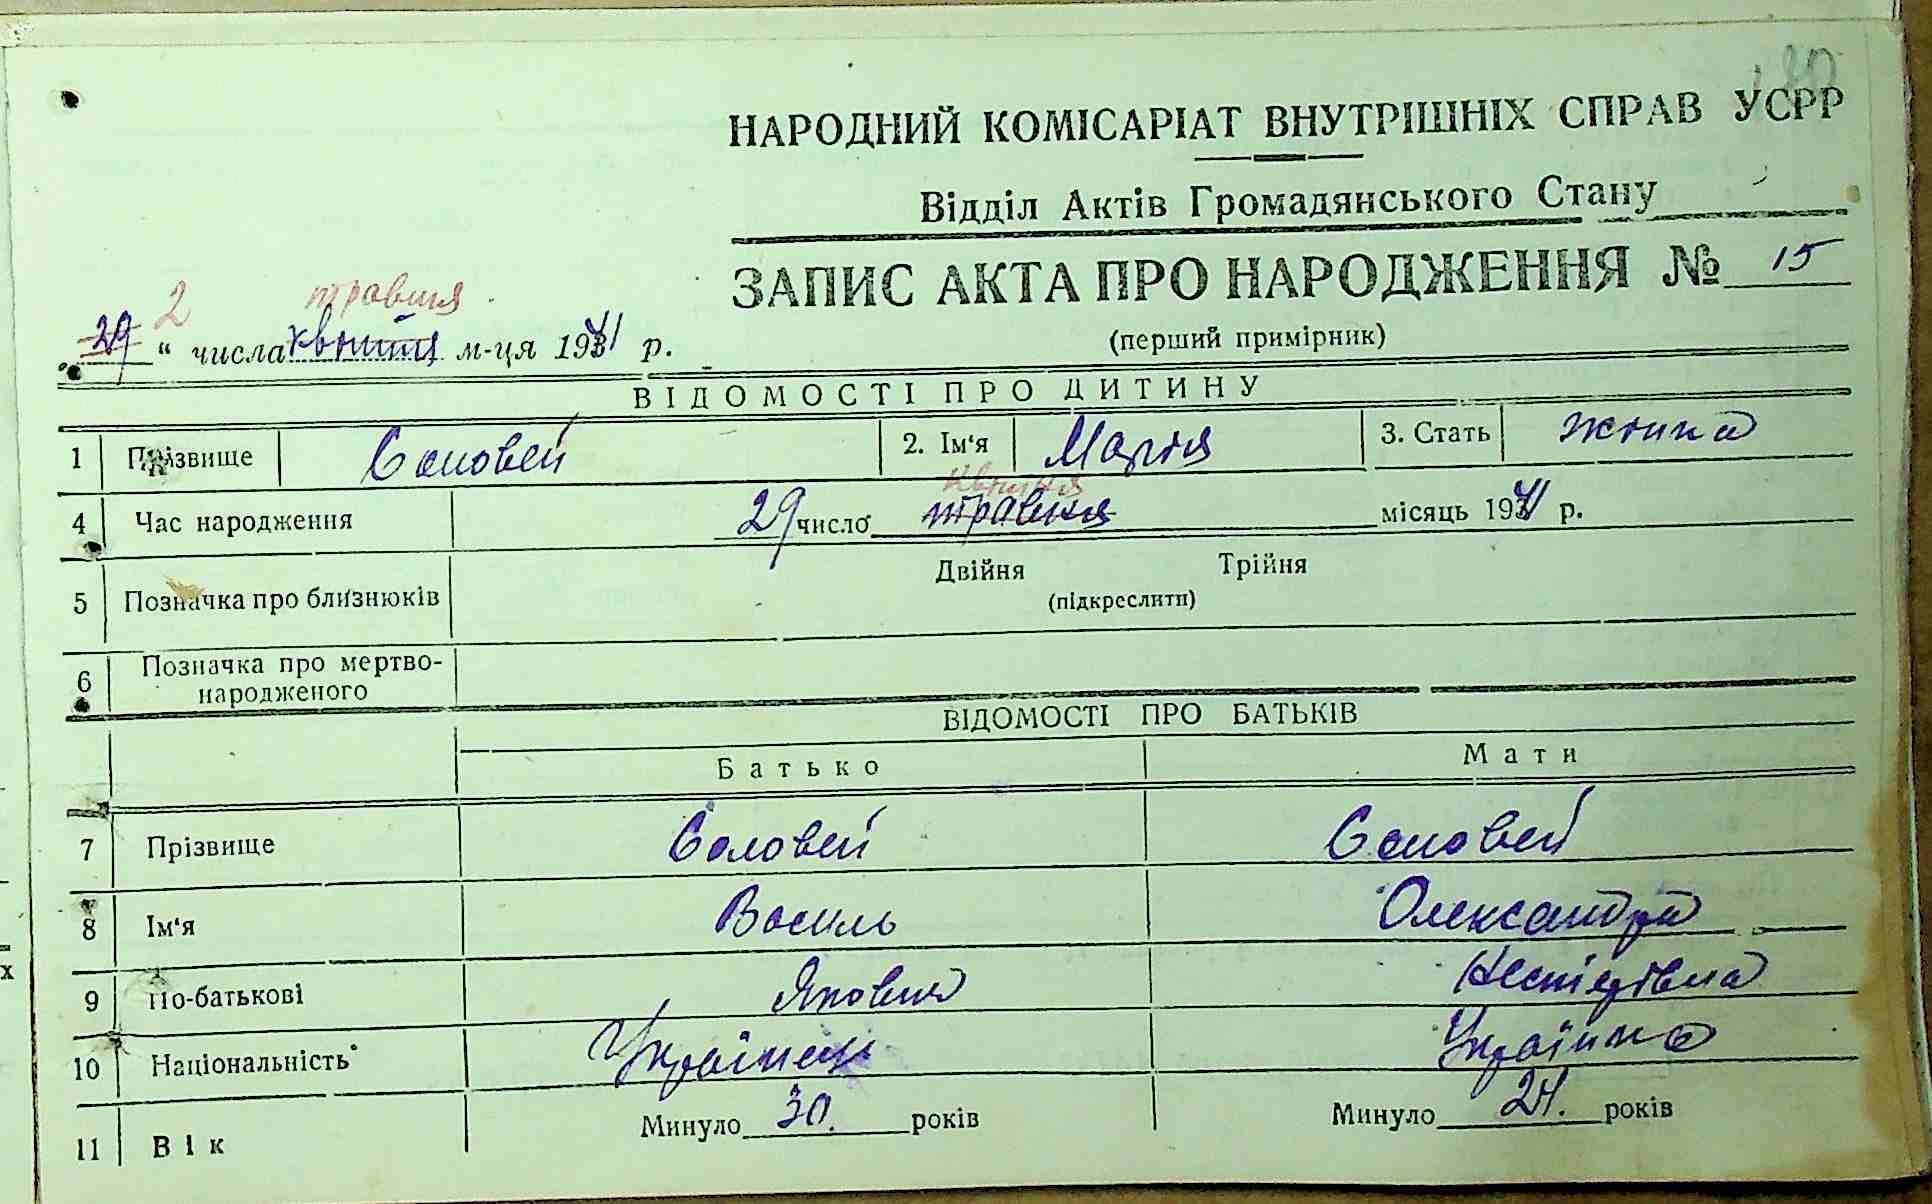 НАРОДНИЙ КОМІСАРІАТ ВНУТРІШНІХ СПРАВ УСРР
Відділ Актів Громадянського Стану
ЗАПИС АКТА ПРО НАРОДЖЕННЯ № 15
(перший примірник)
2 травня
29 “ числа квітня м-ця 1941 р.
ВІДОМОСТІ ПРО ДИТИНУ
1 Прізвище Соловей 2. Ім‘я Марія 3. Стать жінка
квітня
4 Час народження 29 число травня місяць 1941 р.
5 Позначка про близнюків Двійня Трійня
(підкреслити)
6 Позначка про мертво-
народженого
ВІДОМОСТІ ПРО БАТЬКІВ
Батько Мати
7 Прізвище Соловей Соловей
8 Ім‘я Василь Олександра
9 По-батькові Якович Нестерівна
10 Національність Українець Українка
11 Вік Минуло 30. років Минуло 24. років
х